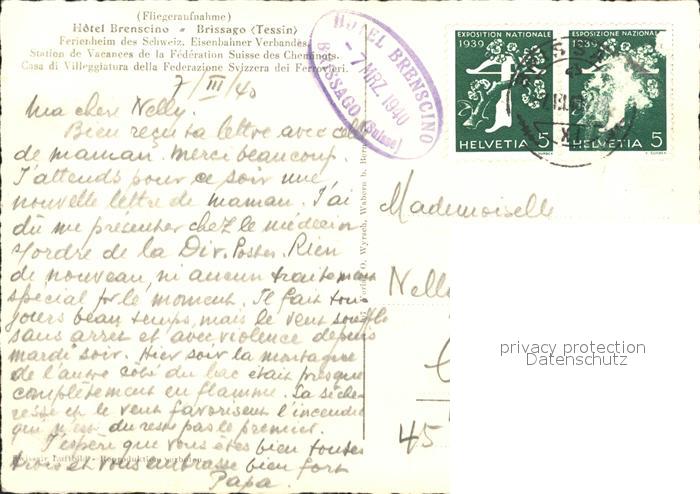 (Fliegeraufnahme)
Hôtel Brenscino - Brissago (Tessin)
Ferienheim des Schweiz. Eisenbahner Verbandes.
Station de Vacances de la Fédération Suisse des Cheminots.
Casa di Villeggiatura della Federazione Svizzera dei Ferrovieri.
HÔTEL BRENSCINO
- 7 MRZ. 1940
BRISSAGO (Suisse)
EXPOSITION NATIONALE
1939
HELVETIA 5
ESPOSIZIONE NAZIONALE
1939
HELVETIA 5
7/III/40
Ma chère Nelly.
Bien reçu ta lettre avec celle
de maman. Merci beaucoup.
J'attends pour ce soir une
nouvelle lettre de maman. J'ai
dû me présenter chez le médecin
s/ordre de la Div. Postes. Rien
de nouveau, ni aucun traitement
spécial pr le moment. Il fait tou-
jours beau temps, mais le vent souffle
sans arrêt et avec violence depuis
mardi soir. Hier soir la montagne
de l'autre côté du lac était presque
complètement en flamme. La séche-
resse et le vent favorisent l'incendie
qui n'est du reste pas le premier.
J'espère que vous êtes bien toutes
trois et vous embrasse bien fort
Papa.
Mademoiselle
Nelly
45
Swissair Luftbild - Reproduktion verboten
O. Wyrsch, Wabern b. Bern
privacy protection
Datenschutz